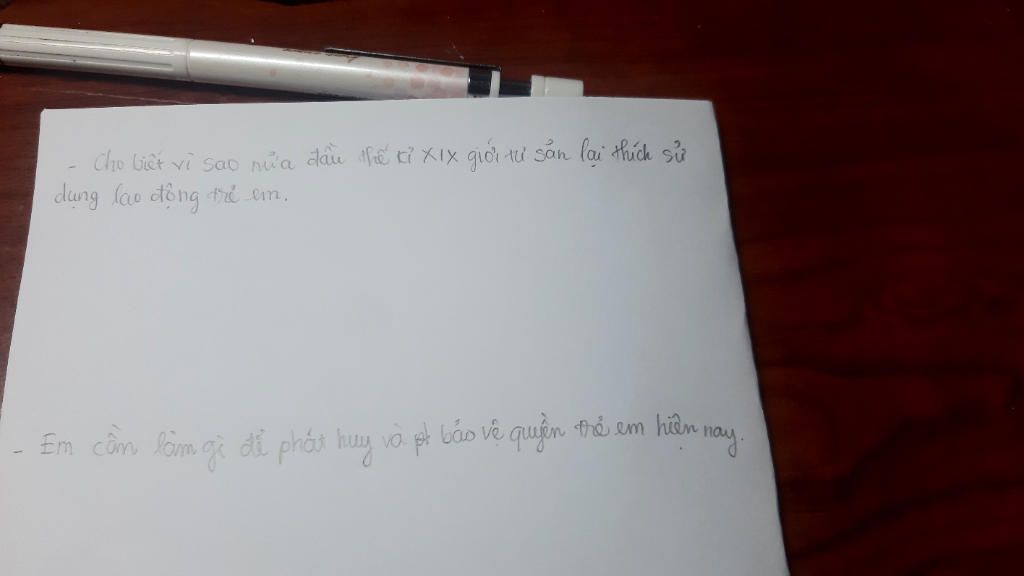 - Cho biết vì sao nửa đầu thế kỉ XIX giới tư sản lại thích sử
dụng lao động trẻ em.
- Em cần làm gì để phát huy và bảo vệ quyền trẻ em hiện nay.